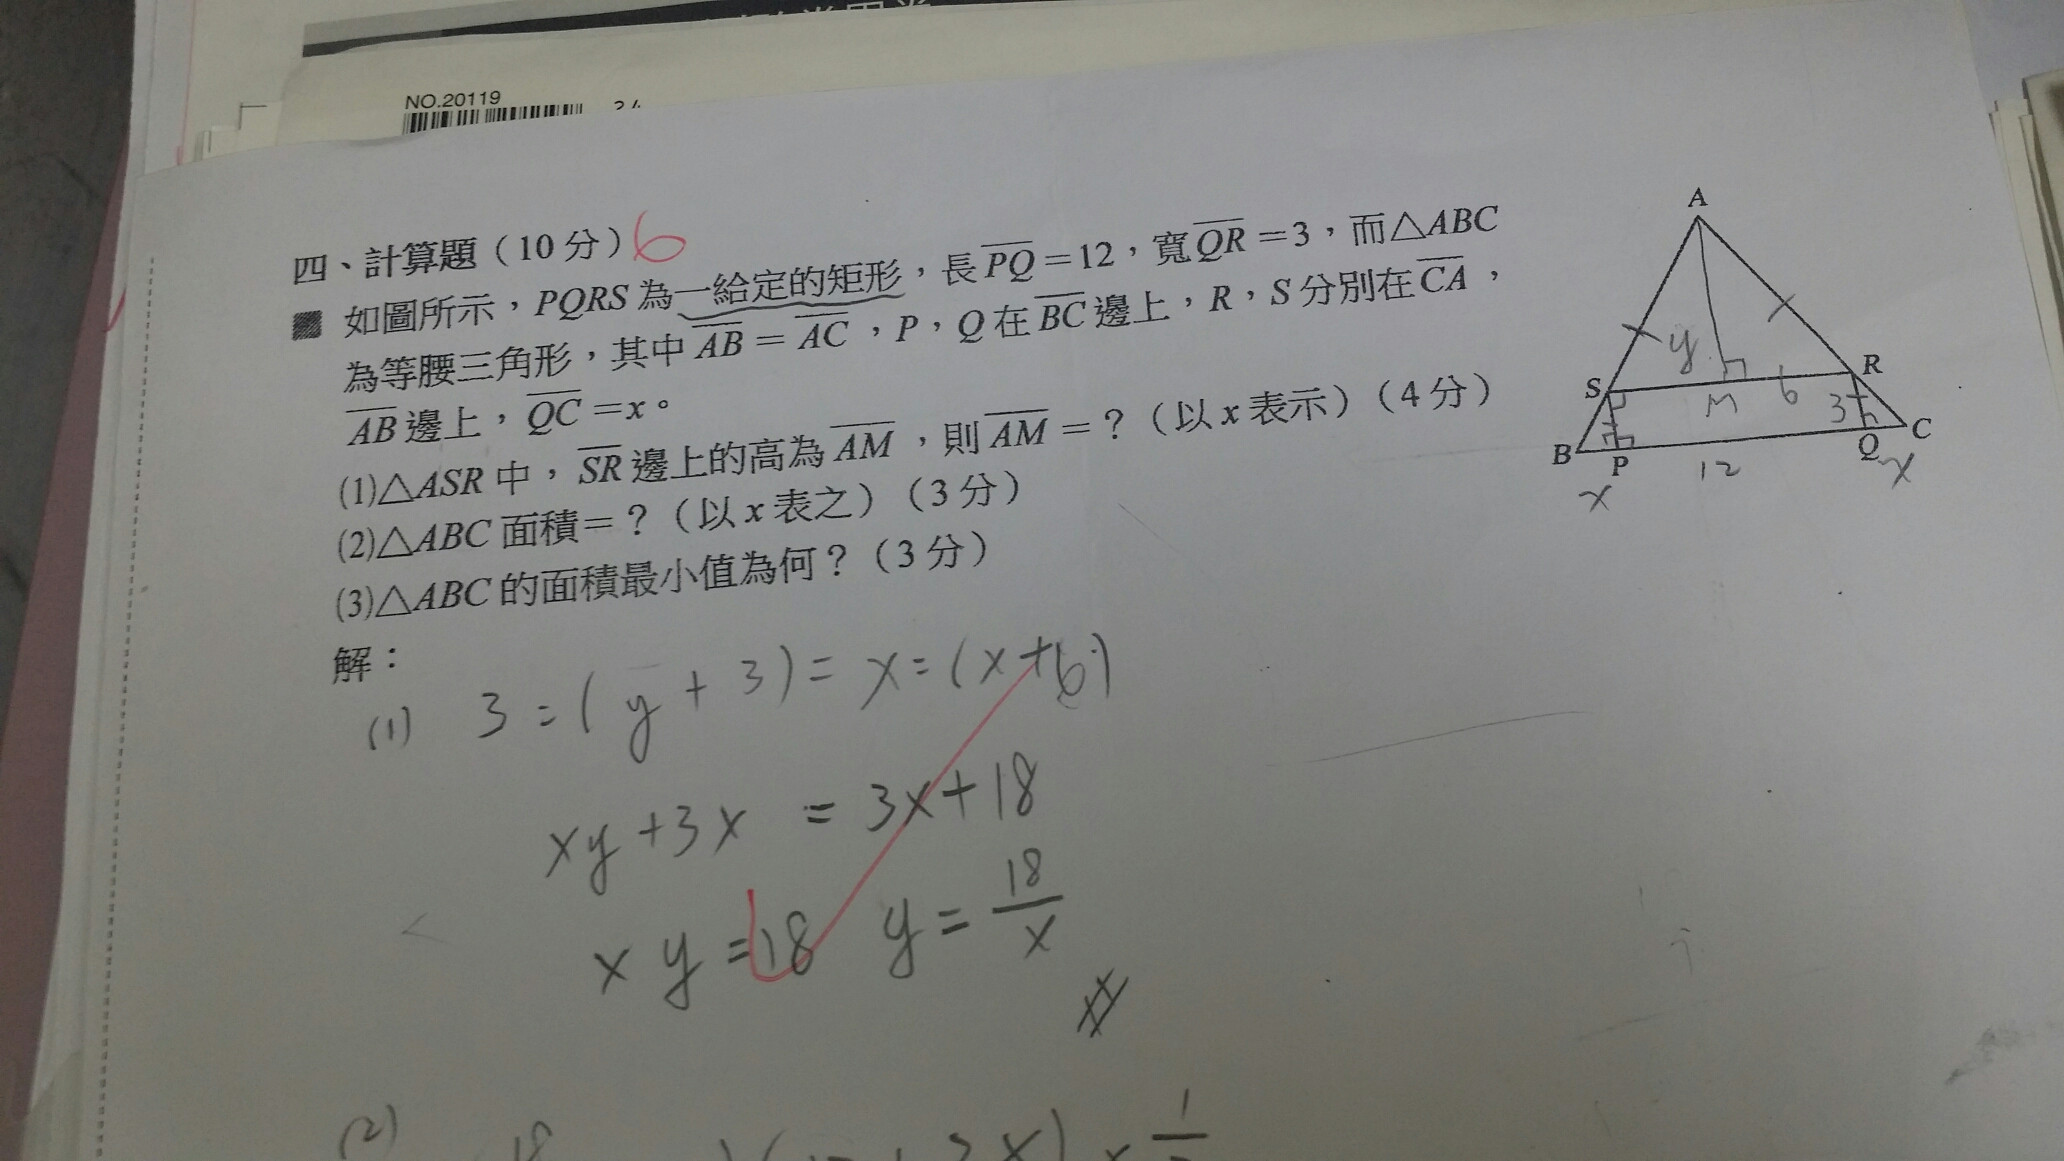 NO.20119
四、計算題（10分）6
如圖所示，PQRS為一給定的矩形，長PQ＝12，寬QR＝3，而△ABC
為等腰三角形，其中AB＝AC，P，Q在BC邊上，R，S分別在CA，
AB邊上，QC＝x。
(1)△ASR中，SR邊上的高為AM，則AM＝？（以x表示）（4分）
(2)△ABC面積＝？（以x表之）（3分）
(3)△ABC的面積最小值為何？（3分）
A
y
S
R
M
6
3
B
P
12
Q
C
x
x
解：
(1) 3:(y+3)=x:(x+6)
xy+3x = 3x+18
xy=18 y=18/x
(2)